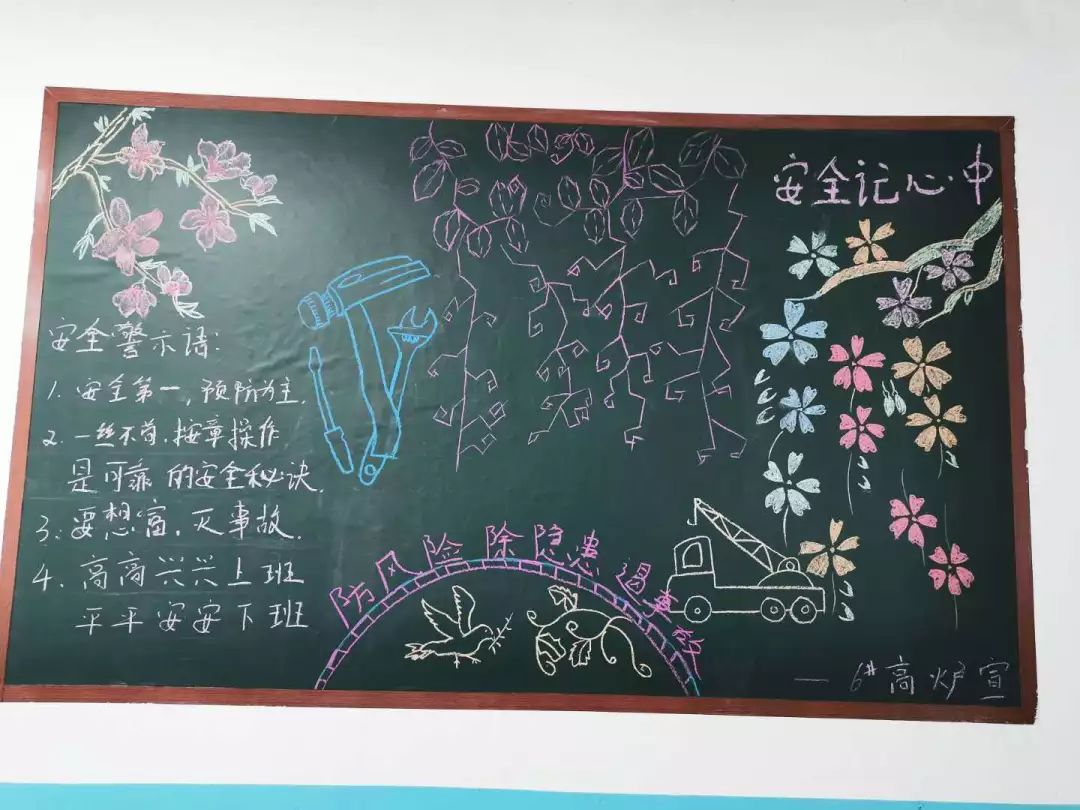 安全记心中
安全警示语:
1. 安全第一,预防为主.
2. 一丝不苟.按章操作
是可靠的安全秘诀.
3: 要想富.灭事故.
4. 高高兴兴上班
平平安安下班
防风险除隐患遏事故
— 6#高炉宣